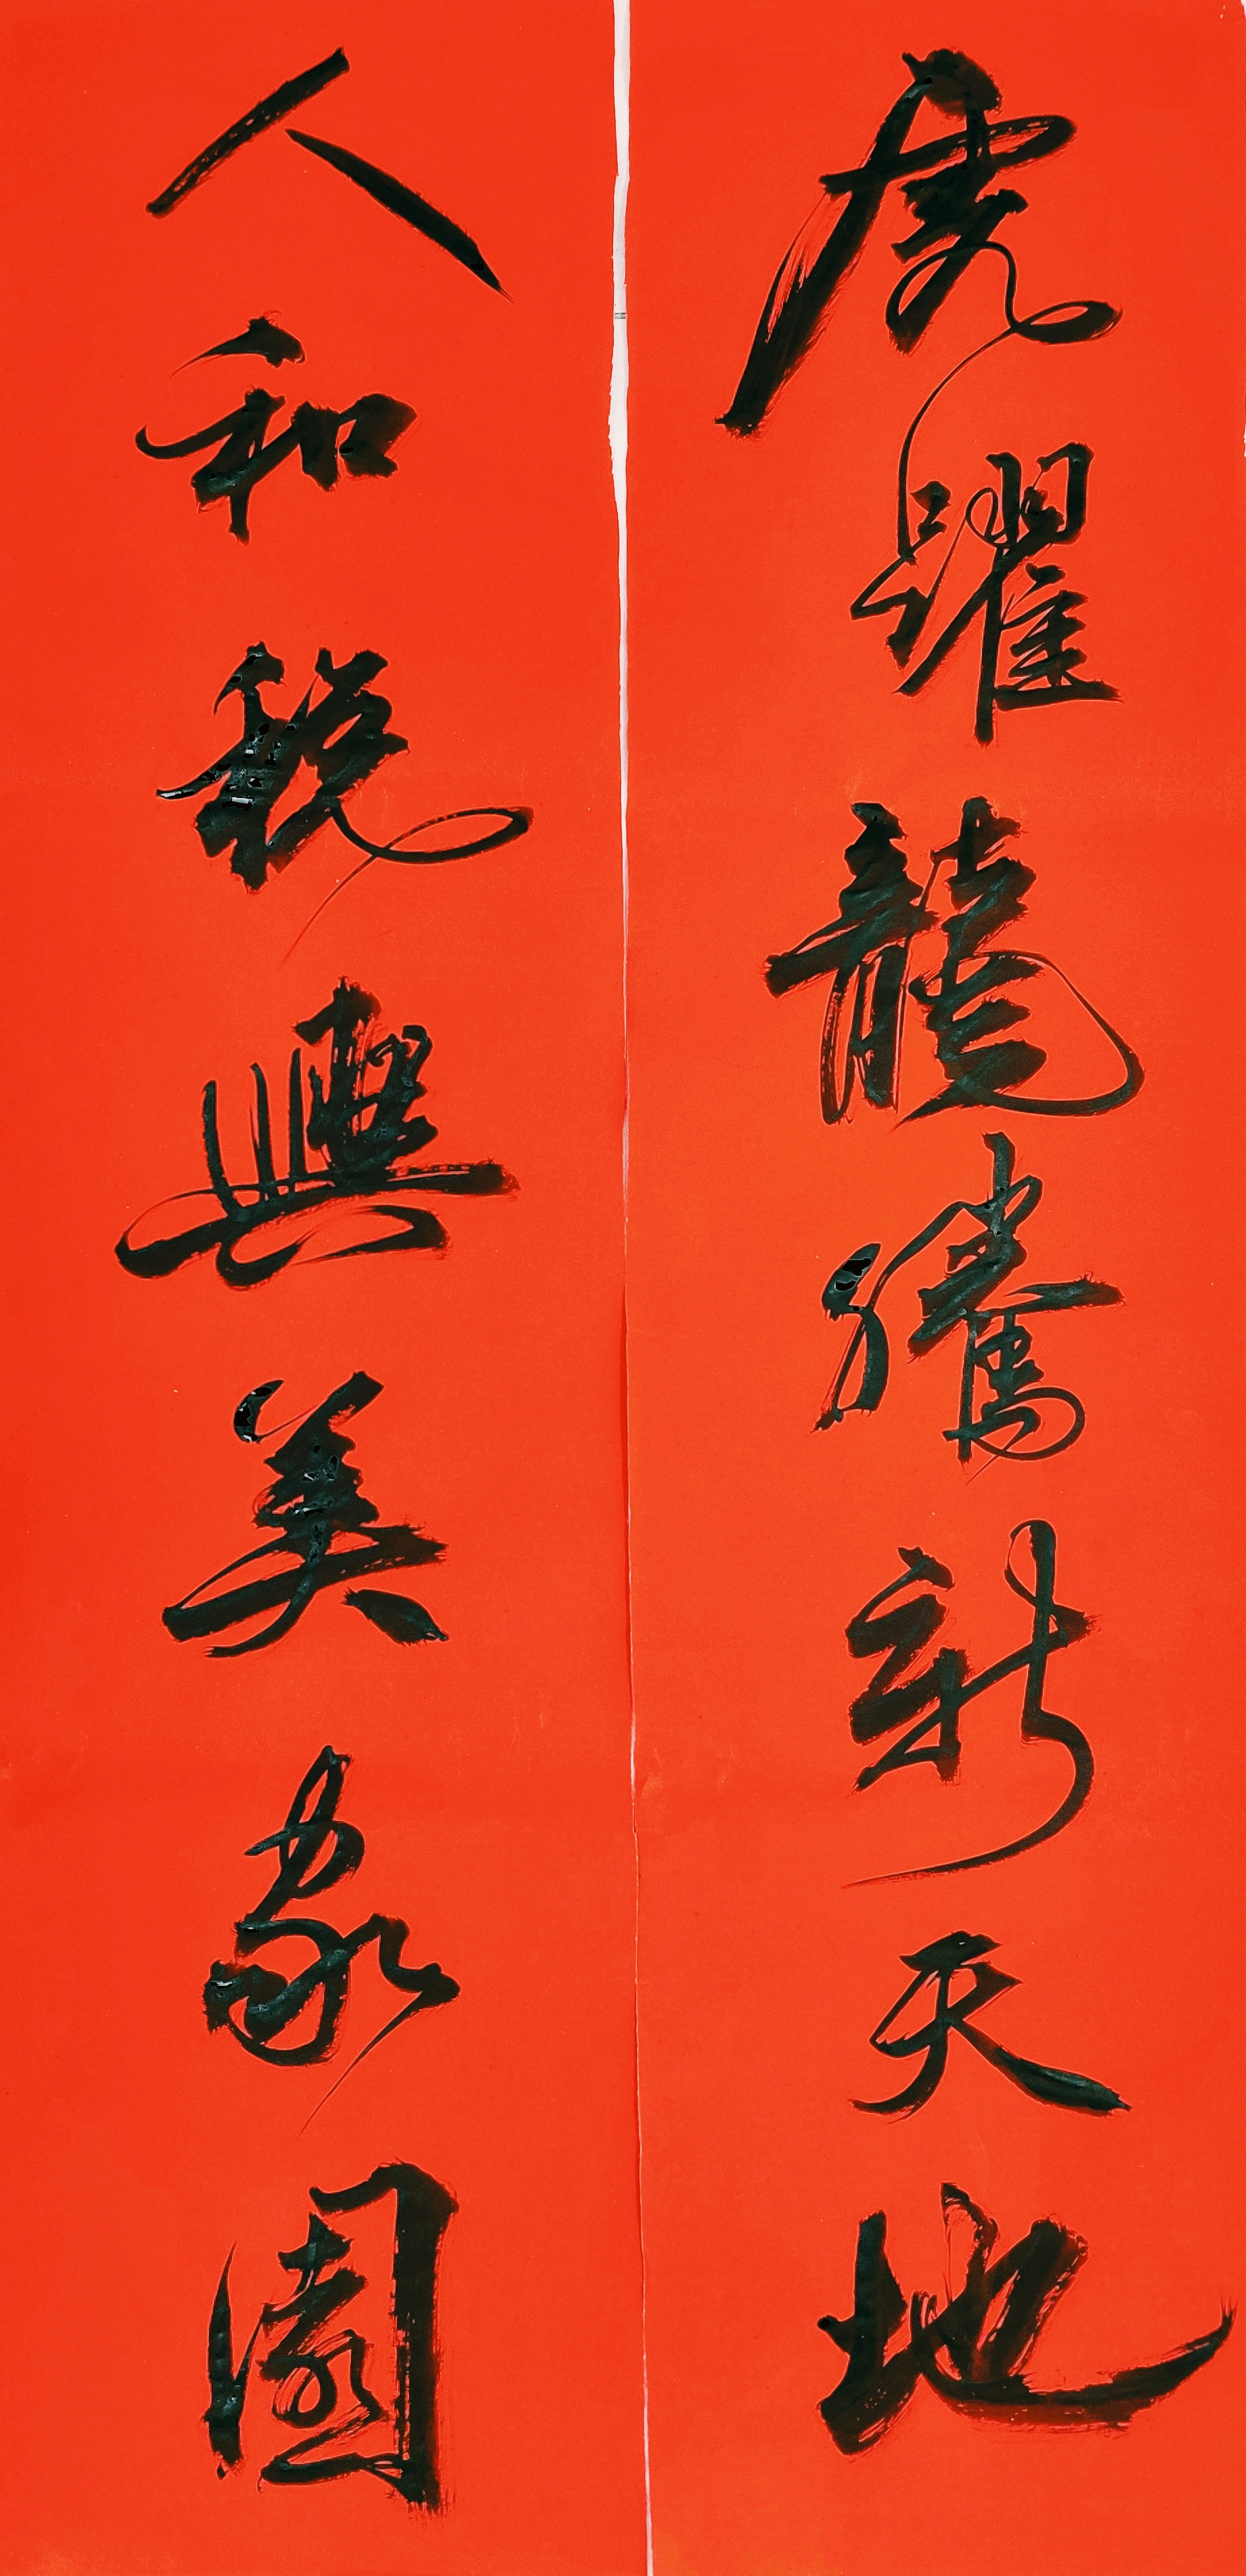 虎躍龍騰新天地
人和税興美家園